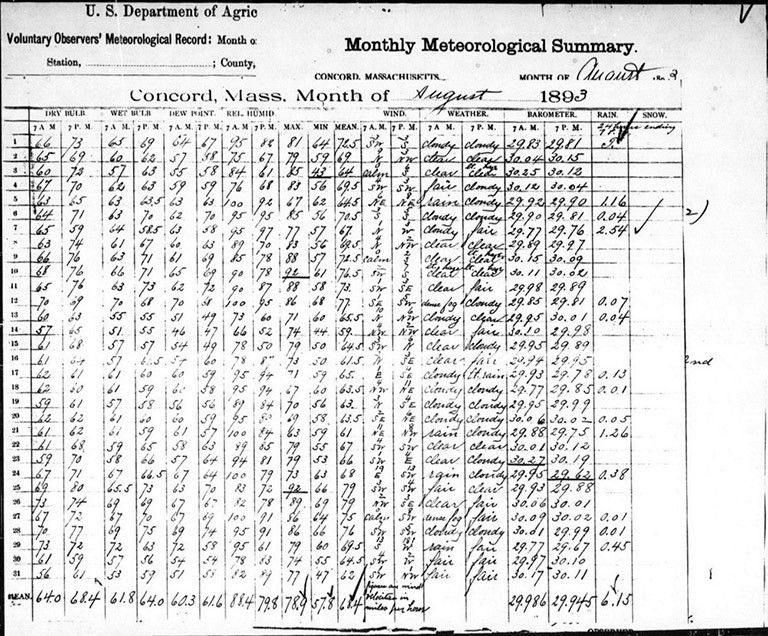 U. S. Department of Agric
Voluntary Observers' Meteorological Record: Month o
Monthly Meteorological Summary.
Station, ; County,
CONCORD, MASSACHUSETTS. MONTH OF August 1893
Concord, Mass. Month of August 1893
DRY BULB. WET BULB DEW POINT. REL. HUMID. WIND. WEATHER. BAROMETER. RAIN. SNOW.
7 A. M. 7 P. M. 7 A. M. 7 P. M. 7 A. M. 7 P. M. 7 A. M. 7 P. M. MAX. MIN MEAN. 7 A. M. 7 P. M. 7 A. M. 7 P. M. 7 A. M. 7 P. M. 24 hours ending
1 66 73 65 69 64 67 95 82 81 64 72.5 SW S cloudy cloudy 29.83 29.81 T
2 65 69 60 62 57 58 75 67 79 59 69 N NW clear clear 30.04 30.15
3 60 72 57 63 55 58 84 61 85 43 64 calm S clear clear 30.25 30.12
4 67 70 62 63 59 59 76 68 83 56 69.5 SW S fair cloudy 30.12 30.04
5 63 65 63 63.5 63 63 100 92 67 62 64.5 NE NE rain cloudy 29.92 29.90 1.16
6 64 71 63 70 62 70 95 95 85 56 70.5 S S cloudy cloudy 29.90 29.81 0.04
7 65 59 64 58.5 63 58 95 97 77 57 67 N W cloudy fair 29.77 29.76 2.54
8 63 74 61 67 60 63 89 70 83 56 69.5 N NW clear clear 29.89 29.97
9 66 76 63 71 61 69 85 78 88 57 72.5 calm S clear clear 30.15 30.09
10 68 76 66 71 65 69 90 78 92 61 76.5 SW S clear clear 30.11 30.02
11 65 76 63 73 62 72 90 87 88 58 73 SW SE clear fair 29.98 29.89
12 70 69 70 68 70 68 100 95 86 68 77 SE SW dense fog cloudy 29.85 29.81 0.07
13 60 63 55 55 51 49 73 60 71 60 65.5 N N cloudy clear 29.95 30.01 0.04
14 57 65 51 55 46 47 66 52 74 44 59 NW NW clear fair 30.10 29.98
15 61 68 57 57 54 49 78 50 79 50 64.5 SW N clear cloudy 29.95 29.89
16 61 57 61.5 60 78 73 50 61.5 N SE clear fair 29.94 29.95
17 62 61 61 60 60 59 95 94 71 59 65 E SE cloudy lt. rain 29.93 29.78 0.13
18 62 60 61 59 60 58 95 94 67 60 63.5 NW NE cloudy cloudy 29.77 29.85 0.01
19 59 61 57 58 56 56 89 84 70 56 63 N SE cloudy cloudy 29.95 29.99
20 62 62 61 60 60 59 95 69 58 63.5 SE NE cloudy cloudy 30.06 30.02 0.05
21 61 62 61 59 61 57 100 84 63 59 61 NE NW rain cloudy 29.88 29.75 1.26
22 61 68 59 65 58 63 89 85 79 55 67 SW SW clear clear 30.01 30.12
23 59 70 58 66 57 64 94 81 79 53 66 SW SE clear cloudy 30.27 30.19
24 67 71 67 66.5 67 64 100 79 73 63 68 E SW rain cloudy 29.95 29.62 0.38
25 69 80 65.5 73 63 70 83 72 92 66 79 SW SW fair clear 29.93 29.88
26 73 74 69 69 67 67 82 78 89 69 79 NW SE clear fair 30.06 30.01
27 67 72 67 70 67 69 100 91 86 64 75 calm SW dense fog fair 30.09 30.02 0.01
28 70 77 69 75 69 74 95 91 86 66 76 SW SW cloudy cloudy 30.01 29.99 0.01
29 73 72 72 63 72 58 95 61 79 60 69.5 S W rain fair 29.77 29.67 0.45
30 61 59 57 56 54 54 78 83 74 55 64.5 SW W fair fair 29.97 30.10
31 56 61 53 59 51 58 82 89 77 47 62 SW NW fair fair 30.17 30.11
MEAN. 64.0 68.4 61.8 64.0 60.3 61.6 88.4 79.8 78.9 57.8 68.4 figures are wind velocities in miles per hour 29.986 29.945 6.15